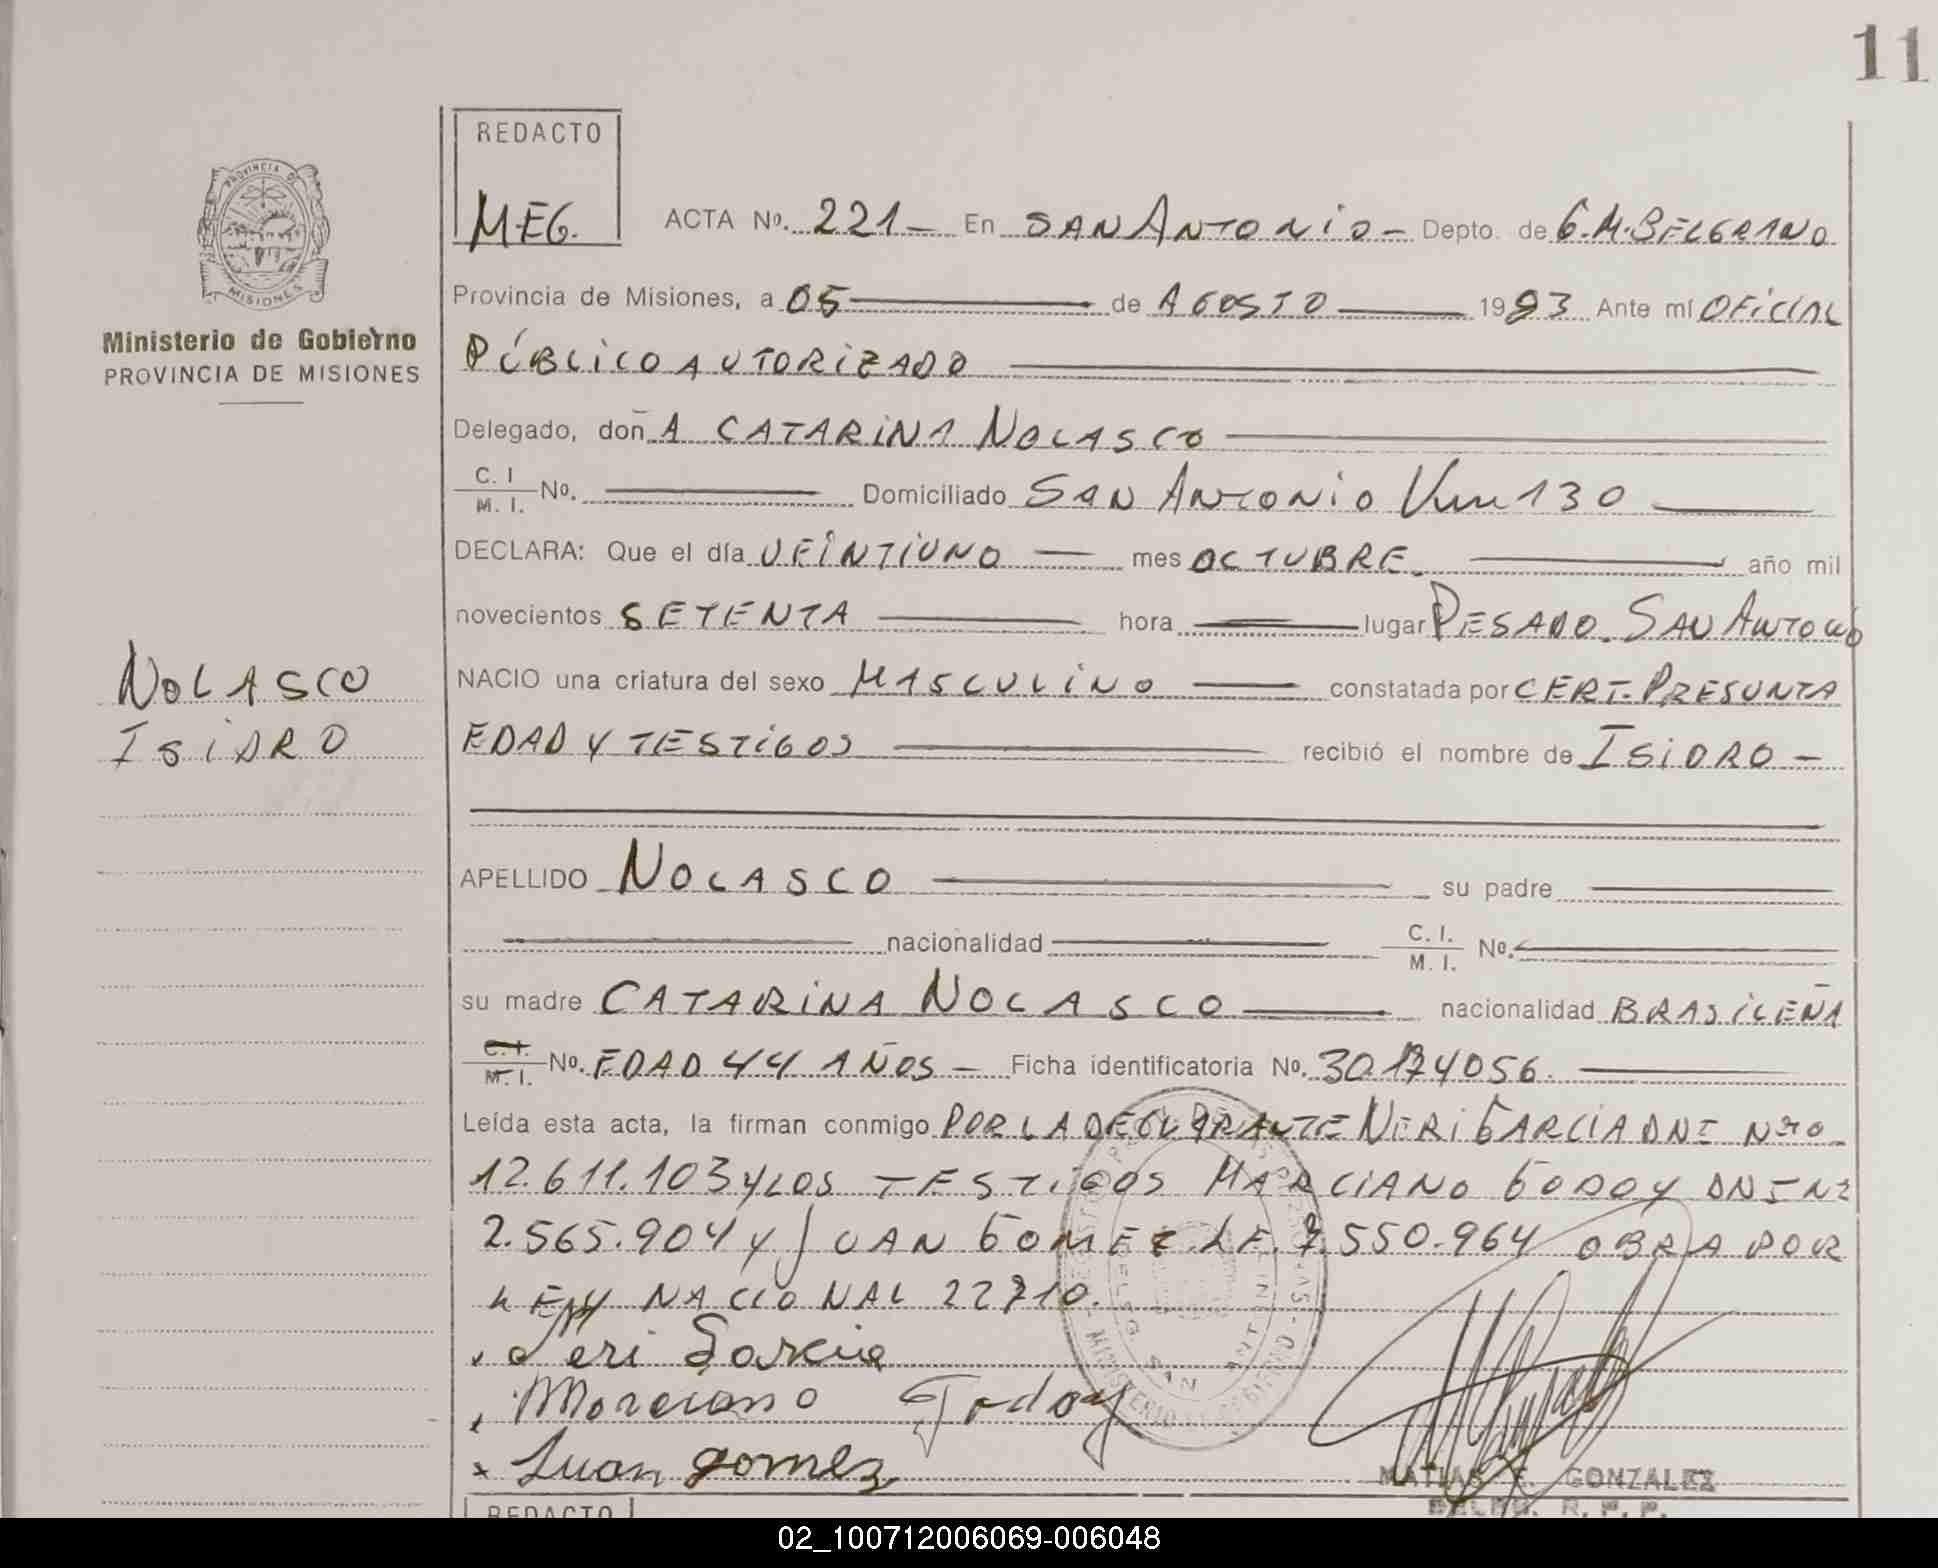 11
REDACTO
MEG.
ACTA Nº. 221- En SAN ANTONIO- Depto. de G.M.BELGRANO
Provincia de Misiones, a 05 de AGOSTO 1983 Ante mí OFICIAL
PÚBLICO AUTORIZADO
PROVINCIA DE
MISIONES
Ministerio de Gobierno
PROVINCIA DE MISIONES
Delegado, doñA CATARINA NOLASCO
C. I
M. I. Nº. Domiciliado SAN ANTONIO Km 130
DECLARA: Que el día VEINTIUNO mes OCTUBRE. año mil
novecientos SETENTA hora lugar PESADO. SAN ANTONIO
NOLASCO
ISIDRO
NACIO una criatura del sexo MASCULINO constatada por CERT. PRESUNTA
EDAD Y TESTIGOS recibió el nombre de ISIDRO-
APELLIDO NOLASCO su padre
nacionalidad C. I.
M. I. Nº.
su madre CATARINA NOLASCO nacionalidad BRASILEÑA
C. I.
M. I. Nº. EDAD 44 AÑOS- Ficha identificatoria Nº. 30.174056.
Leída esta acta, la firman conmigo POR LA DECLARANTE NERI GARCIA DNI Nro
12.611.103 Y LOS TESTIGOS MARCIANO GODOY DNI Nº
2.565.904 Y JUAN GOMEZ L.E. 7.550.964 OBRA POR
LEY NACIONAL 22710.
Neri Garcia
Marciano Godoy
x Juan gomez
MINISTERIO DE GOBIERNO
SAN ANTONIO
MATIAS F. GONZALEZ
DELEG. R. P. P.
REDACTO
02_100712006069-006048